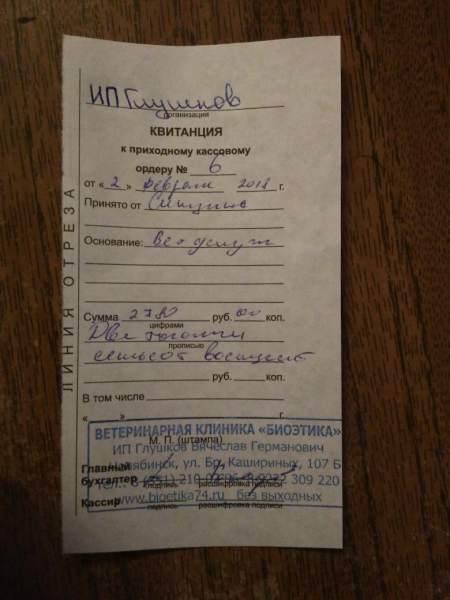 ИП Глушков
организация
КВИТАНЦИЯ
к приходному кассовому
ордеру № 6
от «2» февраля 2018 г.
Принято от
Основание: вет. услуги
Сумма 2780 руб. 00 коп.
цифрами
Две тысячи
прописью
семьсот восемьдесят
руб. коп.
В том числе
« » г.
ВЕТЕРИНАРНАЯ КЛИНИКА «БИОЭТИКА»
М. П. (штампа)
ИП Глушков Вячеслав Германович
Челябинск, ул. Бр. Кашириных, 107 Б
Главный
бухгалтер
309 220
подпись расшифровка подписи
www.bioetika74.ru без выходных
Кассир
подпись расшифровка подписи
ЛИНИЯ ОТРЕЗА